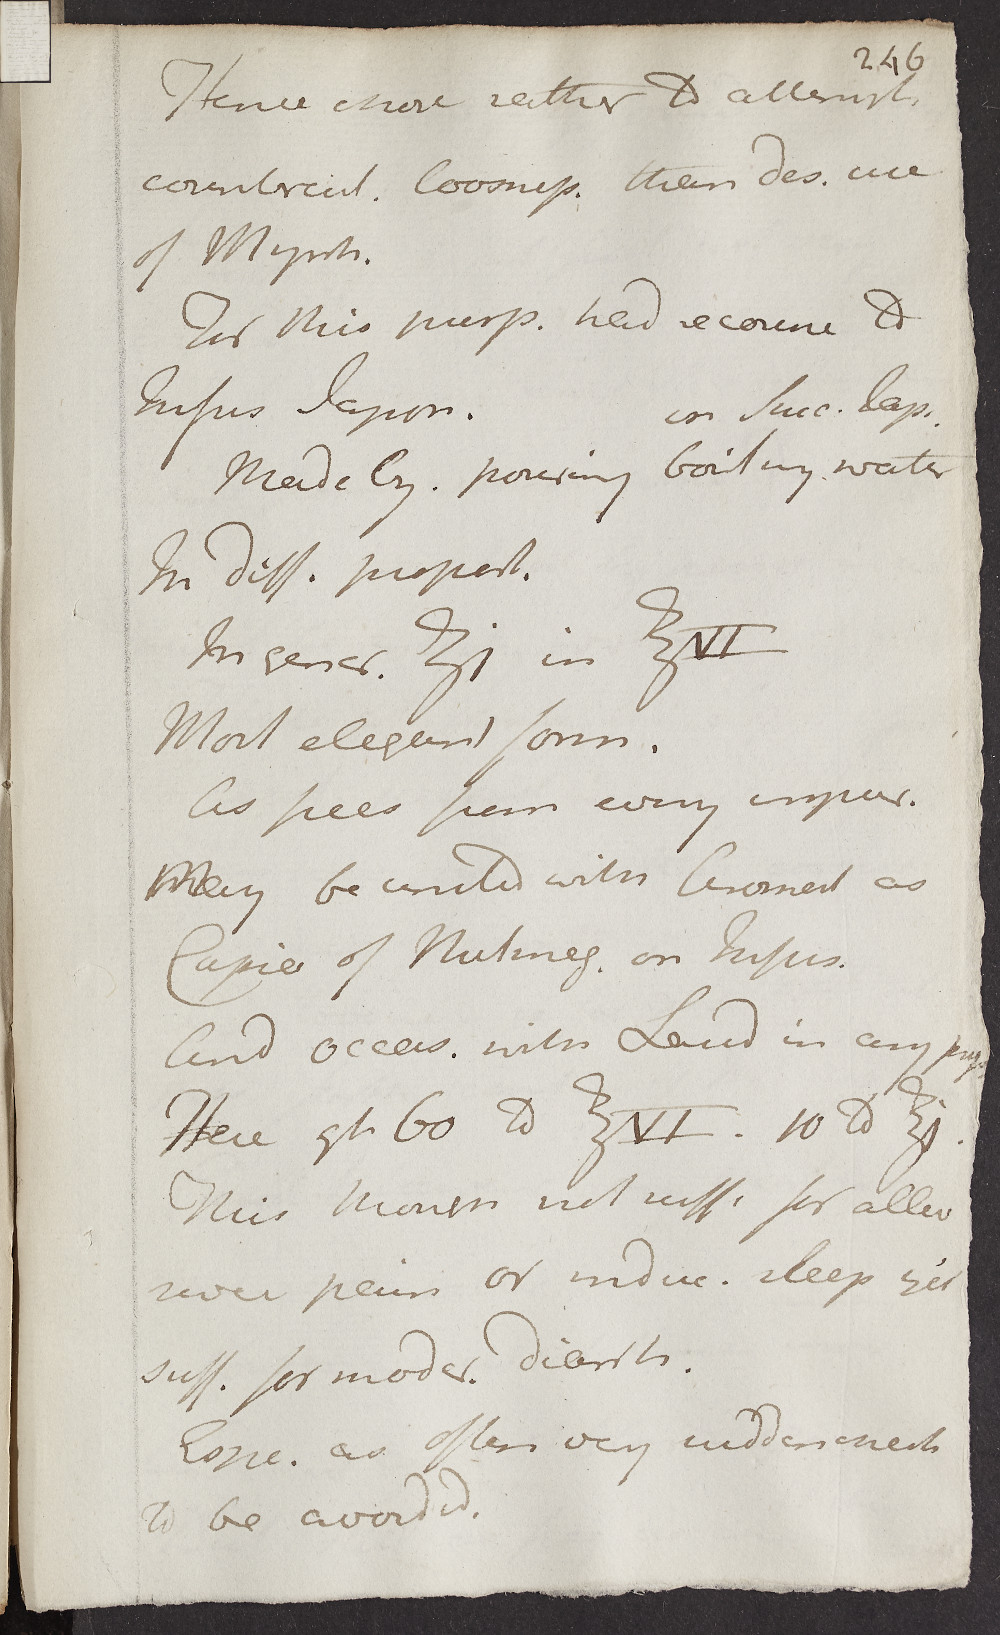 246
Hence chose rather to attempt
counteract. loosness. than des. use
of Myrrh.
For this purp. had recourse to
Infus Japon.
on Succ. Jap.
Made by. pouring boiling water
In diff. proport.
In gener. ʒj in ℥VI
Most elegant form.
As frees from every impur.
May be united with Aromat as
of Nutmeg. on Infus.
And occas. with Laud in any
Here gtt 60 to ℥VI. 10 to ℥j.
This thongh not suff. for allev
severe pain or induc. sleep yet
suff. for moder. diarrh.
Espe. as often very sudden check
to be avoided.